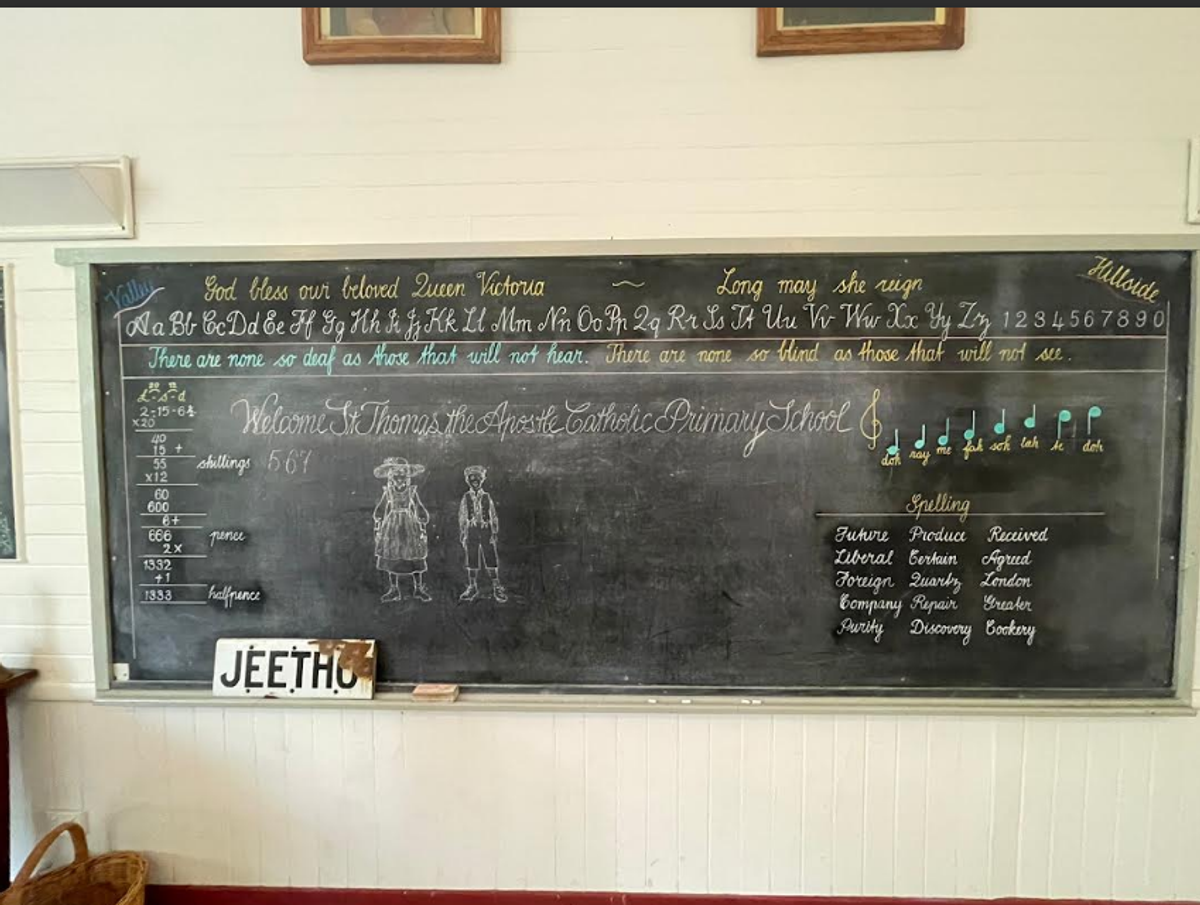 Valley
God bless our beloved Queen Victoria ~ Long may she reign
Hillside
Aa Bb Cc Dd Ee Ff Gg Hh Ii Jj Kk Ll Mm Nn Oo Pp Qq Rr Ss Tt Uu Vv Ww Xx Yy Zz 1 2 3 4 5 6 7 8 9 0
There are none so deaf as those that will not hear. There are none so blind as those that will not see.
20 12
£-s-d
2-15-6½
x20
40
15 +
55 shillings
x12
60
600
6+
666 pence
2x
1332
+1
1333 halfpence
Welcome St Thomas the Apostle Catholic Primary School
567
doh ray me fah soh lah te doh
Spelling
Future Produce Received
Liberal Certain Agreed
Foreign Quartz London
Company Repair Greater
Purity Discovery Cookery
JEETHO